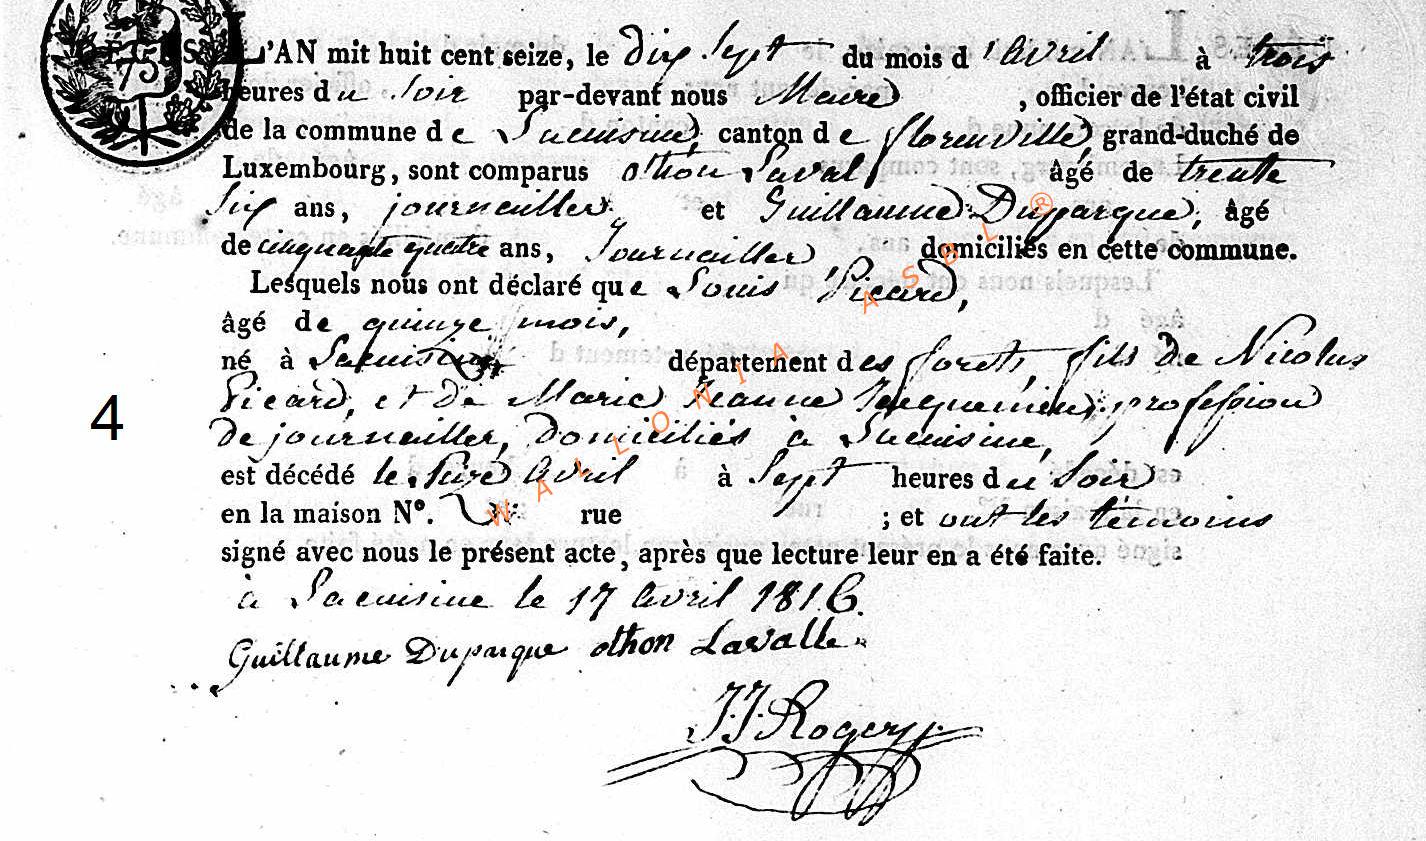 75 S
L'AN mit huit cent seize, le dix Sept du mois d'avril à trois
heures du Soir par-devant nous Maire, officier de l'état civil
de la commune de Lacuisine, canton de florenville, grand-duché de
Luxembourg, sont comparus othon Laval âgé de trente
Six ans, journailler et Guillaume Duparque, âgé
de cinquante quatre ans, Journailler domiciliés en cette commune.
Lesquels nous ont déclaré que Louis Picard,
âgé de quinze mois,
né à Lacuisine département des forets, fils de Nicolas
Picard, et de Marie Jeanne Jacquemin, profession
4
de journailler, domiciliés à Lacuisine,
est décédé le Seize avril à Sept heures du Soir
en la maison N°. rue ; et ont les témoins
signé avec nous le présent acte, après que lecture leur en a été faite.
à Lacuisine le 17 avril 1816.
Guillaume Duparque othon Lavalle
J.J. Rogery
WALLONIA ASBL ®